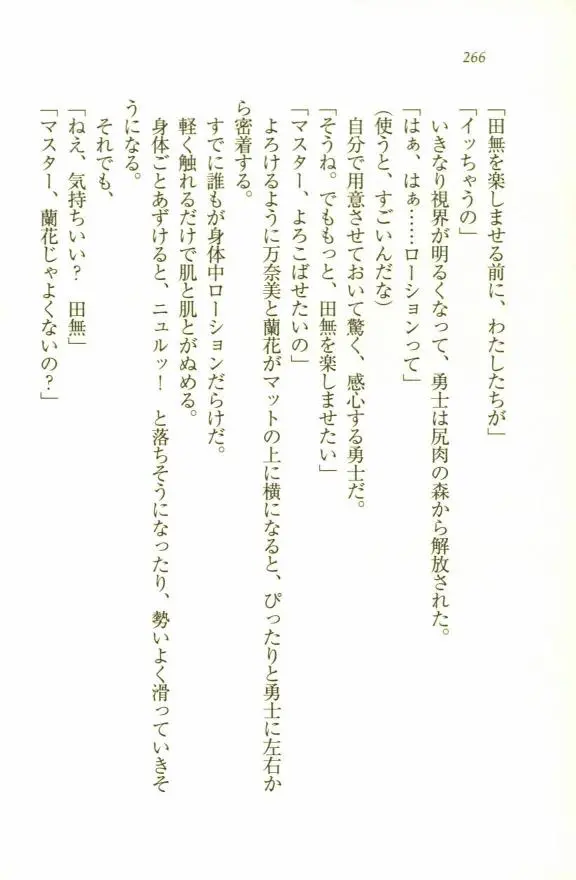 266
「田無を楽しませる前に、わたしたちが」
「イッちゃうの」
いきなり視界が明るくなって、勇士は尻肉の森から解放された。
「はぁ、はぁ……ローションって」
(使うと、すごいんだな)
自分で用意させておいて驚く、感心する勇士だ。
「そうね。でももっと、田無を楽しませたい」
「マスター、よろこばせたいの」
よろけるように万奈美と蘭花がマットの上に横になると、ぴったりと勇士に左右か
ら密着する。
すでに誰もが身体中ローションだらけだ。
軽く触れるだけで肌と肌とがぬめる。
身体ごとあずけると、ニュルッ！　と落ちそうになったり、勢いよく滑っていきそ
うになる。
それでも、
「ねえ、気持ちいい？　田無」
「マスター、蘭花じゃよくないの？」